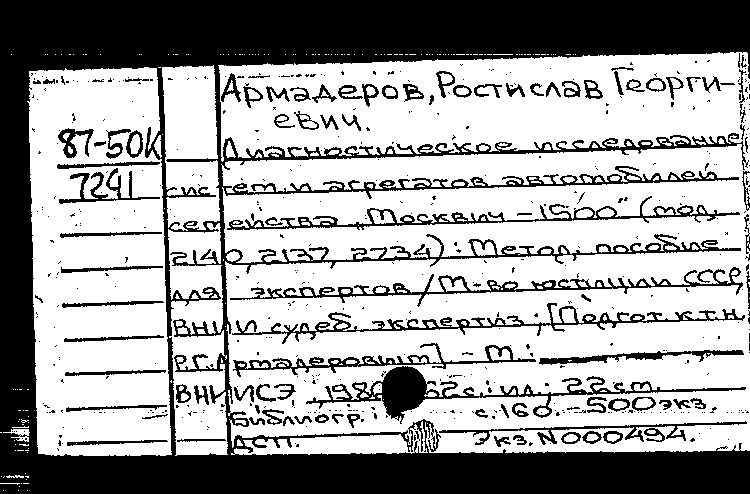 Армадеров, Ростислав Георги-
евич.
87-50К Диагностическое исследование
7291 систем и агрегатов автомобилей
семейства „Москвич - 1500" (мод.
2140, 2137, 2734) : Метод. пособие
для экспертов / М-во юстиции СССР,
ВНИИ судеб. экспертиз ; [Подгот. к.т.н.
Р.Г. Армадеровым] - М. :
ВНИИСЭ, 1980 62с. : ил ; 22см.
Библиогр. : с. 160. - 500экз.
ДСП. Экз. N000494.